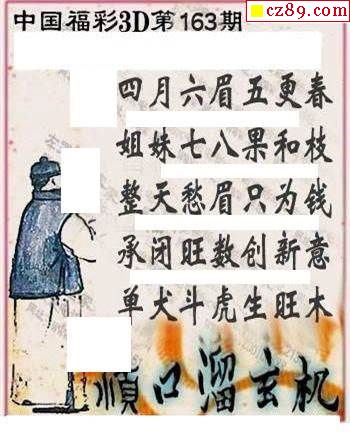 cz89.com
中国福彩3D第163期
四月六眉五更春
姐妹七八果和枝
整天愁眉只为钱
承闭旺数创新意
单犬斗虎生旺木
顺口溜玄机